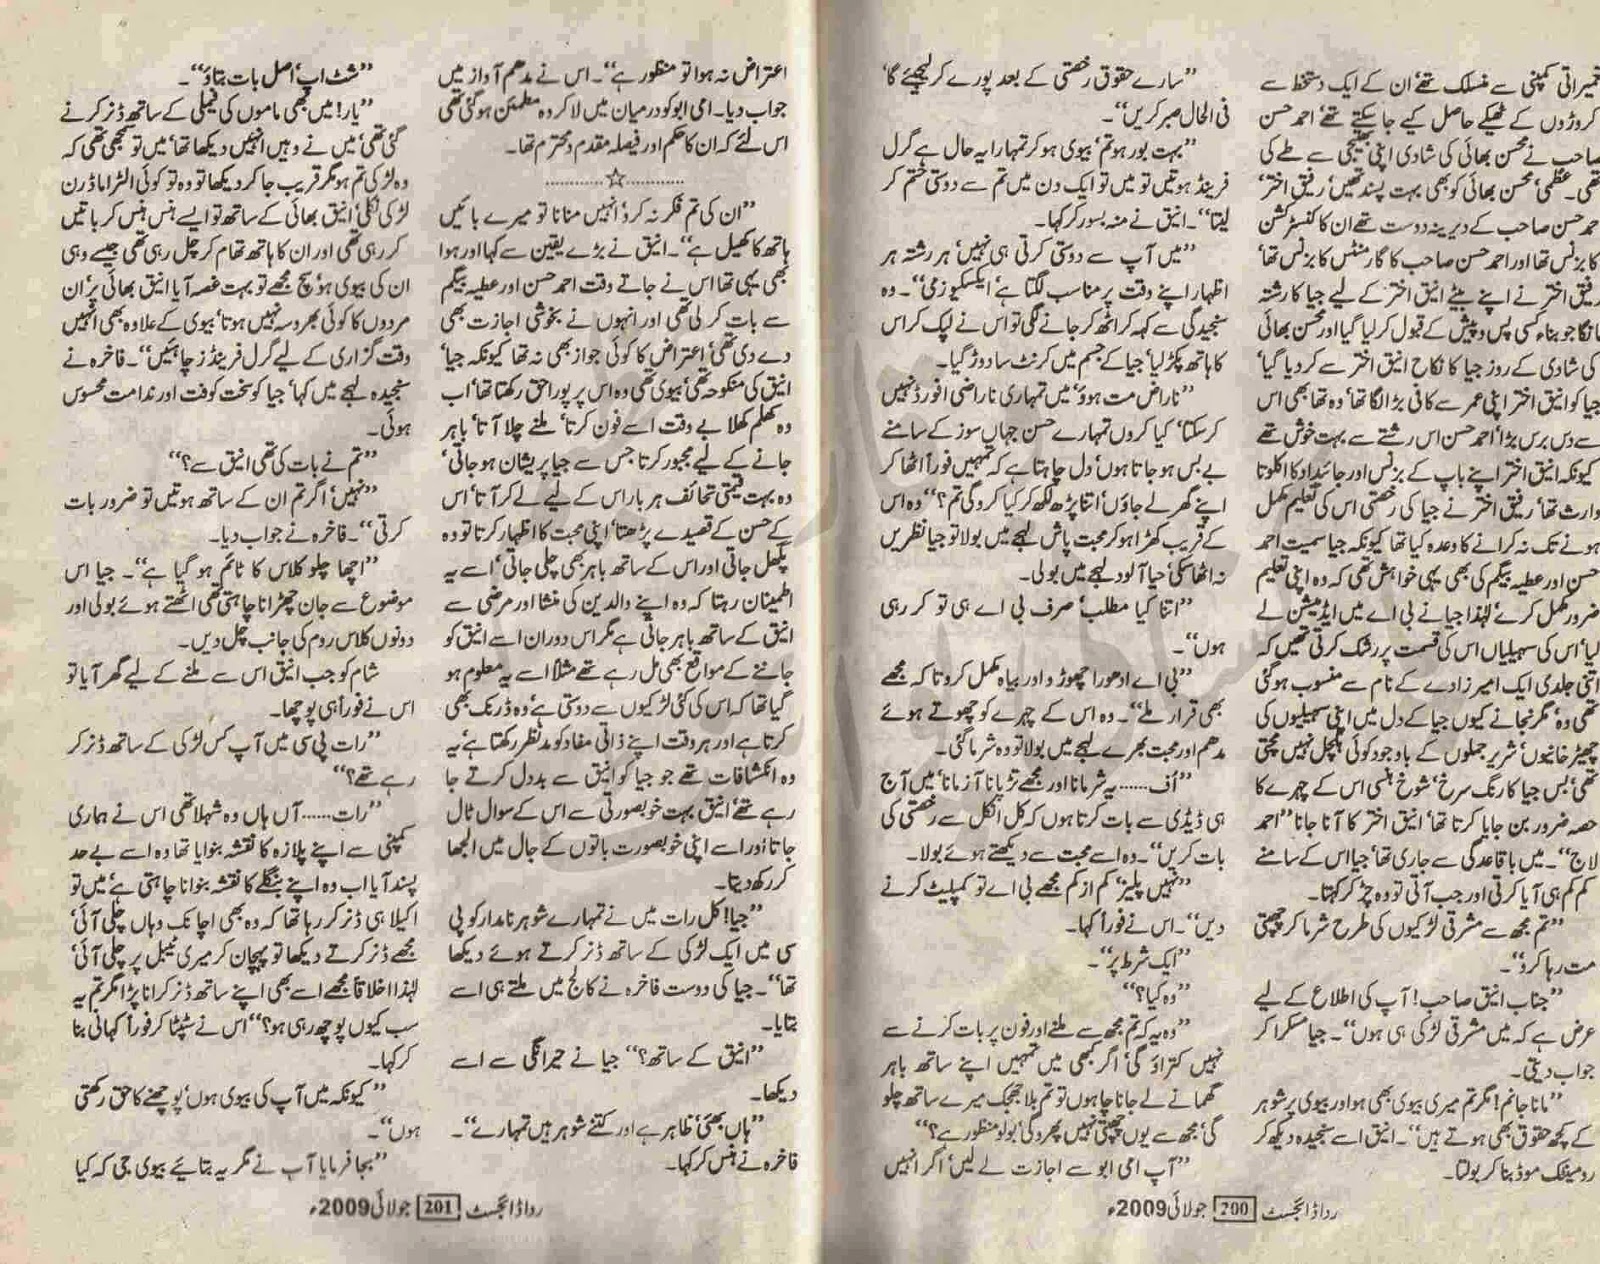 تعمیراتی کمپنی سے منسلک تھے ان کے ایک دستخط سے
کروڑوں کے ٹھیکے حاصل کیے جا سکتے تھے احمد حسن
صاحب نے محسن بھائی کی شادی اپنی بھتیجی سے طے کی
تھی۔ عظمیٰ محسن بھائی کو بھی بہت پسند تھیں رفیق اختر،
احمد حسن صاحب کے دیرینہ دوست تھے ان کا کنسٹرکشن
کا بزنس تھا اور احمد حسن صاحب کا گارمنٹس کا بزنس تھا،
رفیق اختر نے اپنے بیٹے انیق اختر کے لیے جیا کا رشتہ
مانگا جو بناء کسی پس و پیش کے قبول کر لیا گیا اور محسن بھائی
کی شادی کے روز جیا کا نکاح انیق اختر سے کر دیا گیا،
جیا کو انیق اختر اپنی عمر سے کافی بڑا لگا تھا، وہ تھا بھی اس
سے دس برس بڑا، احمد حسن اس رشتے سے بہت خوش تھے
کیونکہ انیق اختر اپنے باپ کے بزنس اور جائیداد کا اکلوتا
وارث تھا، رفیق اختر نے جیا کی رخصتی اس کی تعلیم مکمل
ہونے تک نہ کرانے کا وعدہ کیا تھا کیونکہ جیا سمیت احمد
حسن اور عطیہ بیگم کی بھی یہی خواہش تھی کہ وہ اپنی تعلیم
ضرور مکمل کرے، لہٰذا جیا نے بی اے میں ایڈمیشن لے
لیا، اس کی سہیلیاں اس کی قسمت پر رشک کرتی تھیں کہ
اتنی جلدی ایک امیر زادے کے نام سے منسوب ہو گئی
تھی وہ، مگر نجانے کیوں جیا کے دل میں اپنی سہیلیوں کی
چھیڑ خانیوں، شریر جملوں کے باوجود کوئی ہلچل نہیں مچتی
تھی، بس جیا کا رنگ سرخ، شوخ ہنسی اس کے چہرے کا
حصہ ضرور بن جایا کرتا تھا، انیق اختر کا آنا جانا ’’احمد
لاج‘‘۔ میں باقاعدگی سے جاری تھا، جیا اس کے سامنے
کم کم ہی آیا کرتی اور جب آتی تو وہ چڑ کر کہتا۔
’’تم مجھ سے مشرقی لڑکیوں کی طرح شرما کر چھپتی
مت رہا کرو‘‘۔
’’جناب انیق صاحب! آپ کی اطلاع کے لیے
عرض ہے کہ میں مشرقی لڑکی ہی ہوں‘‘۔ جیا مسکرا کر
جواب دیتی۔
’’مانا جانم! مگر تم میری بیوی بھی ہو اور بیوی پر شوہر
کے کچھ حقوق بھی ہوتے ہیں‘‘۔ انیق اسے سنجیدہ دیکھ کر
رومینٹک موڈ بنا کر بولتا۔
’’سارے حقوق رخصتی کے بعد پورے کر لیجیئے گا،
فی الحال صبر کریں‘‘۔
’’بہت بور ہو تم، بیوی ہو کر تمہارا یہ حال ہے گرل
فرینڈ ہوتیں تو میں تو ایک دن میں تم سے دوستی ختم کر
لیتا‘‘۔ انیق نے منہ بسور کر کہا۔
’’میں آپ سے دوستی کرتی ہی نہیں، ہر رشتہ ہر
اظہار اپنے وقت پر مناسب لگتا ہے، ایکسکیوزمی‘‘۔ وہ
سنجیدگی سے کہہ کر اٹھ کر جانے لگی تو اس نے لپک کر اس
کا ہاتھ پکڑ لیا، جیا کے جسم میں کرنٹ سا دوڑ گیا۔
’’ناراض مت ہوو، میں تمہاری ناراضی افورڈ نہیں
کر سکتا، کیا کروں تمہارے حسن جہاں سوز کے سامنے
بے بس ہو جاتا ہوں، دل چاہتا ہے کہ تمہیں فوراً اٹھا کر
اپنے گھر لے جاؤں، اتنا پڑھ لکھ کر کیا کرو گی تم؟‘‘ وہ اس
کے قریب کھڑا ہو کر محبت پاش لہجے میں بولا تو جیا نظریں
نہ اٹھا سکی، حیا آلود لہجے میں بولی۔
’’اتنا کیا مطلب، صرف بی اے ہی تو کر رہی
ہوں‘‘۔
’’بی اے ادھورا چھوڑو اور بیاہ مکمل کرو تا کہ مجھے
بھی قرار ملے‘‘۔ وہ اس کے چہرے کو چھوتے ہوئے
مدھم اور محبت بھرے لہجے میں بولا تو وہ شرما گئی۔
’’اُف...... یہ شرمانا اور مجھے تڑپانا آزمانا، میں آج
ہی ڈیڈی سے بات کرتا ہوں کہ کل انکل سے رخصتی کی
بات کریں‘‘۔ وہ اسے محبت سے دیکھتے ہوئے بولا۔
’’نہیں پلیز، کم از کم مجھے بی اے تو کمپلیٹ کرنے
دیں‘‘۔ اس نے فوراً کہا۔
’’ایک شرط پر‘‘۔
’’وہ کیا؟‘‘
’’وہ یہ کہ تم مجھ سے ملنے اور فون پر بات کرنے سے
نہیں کتراؤ گی، اگر کبھی میں تمہیں اپنے ساتھ باہر
گھمانے لے جانا چاہوں تو تم بلا جھجک میرے ساتھ چلو
گی، مجھ سے یوں چھپتی نہیں پھرو گی، بولو منظور ہے؟‘‘
’’آپ امی ابو سے اجازت لے لیں، اگر انہیں
ردا ڈائجسٹ 200 جولائی 2009ء
اعتراض نہ ہوا تو منظور ہے‘‘۔ اس نے مدھم آواز میں
جواب دیا۔ امی ابو کو درمیان میں لا کر وہ مطمئن ہو گئی تھی
اس لئے کہ ان کا حکم اور فیصلہ مقدم و محترم تھا۔
............☆............
’’ان کی تم فکر نہ کرو، انہیں منانا تو میرے بائیں
ہاتھ کا کھیل ہے‘‘۔ انیق نے بڑے یقین سے کہا اور ہوا
بھی یہی تھا اس نے جاتے وقت احمد حسن اور عطیہ بیگم
سے بات کر لی تھی اور انہوں نے بخوشی اجازت بھی
دے دی تھی، اعتراض کا کوئی جواز بھی نہ تھا کیونکہ جیا،
انیق کی منکوحہ تھی، بیوی تھی وہ اس پر پورا حق رکھتا تھا، اب
وہ کھلم کھلا بے وقت اسے فون کرتا، ملنے چلا آتا، باہر
جانے کے لیے مجبور کرتا جس سے جیا پریشان ہو جاتی،
وہ بہت قیمتی تحائف ہر بار اس کے لیے لے کر آتا، اس
کے حسن کے قصیدے پڑھتا، اپنی محبت کا اظہار کرتا تو وہ
پگھل جاتی اور اس کے ساتھ باہر بھی چلی جاتی، اسے یہ
اطمینان رہتا کہ وہ اپنے والدین کی منشا اور مرضی سے
انیق کے ساتھ باہر جاتی ہے مگر اس دوران اسے انیق کو
جاننے کے مواقع بھی مل رہے تھے مثلاً اسے یہ معلوم ہو
گیا تھا کہ اس کی کئی لڑکیوں سے دوستی ہے، وہ ڈرنک بھی
کرتا ہے اور ہر وقت اپنے ذاتی مفاد کو مدنظر رکھتا ہے، یہ
وہ انکشافات تھے جو جیا کو انیق سے بددل کرتے جا
رہے تھے، انیق بہت خوبصورتی سے اس کے سوال ٹال
جاتا اور اسے اپنی خوبصورت باتوں کے جال میں الجھا
کر رکھ دیتا۔
’’جیا! کل رات میں نے تمہارے شوہر نامدار کو پی
سی میں ایک لڑکی کے ساتھ ڈنر کرتے ہوئے دیکھا
تھا‘‘۔ جیا کی دوست فاخرہ نے کالج میں ملتے ہی اسے
بتایا۔
’’انیق کے ساتھ؟‘‘ جیا نے حیرانگی سے اسے
دیکھا۔
’’ہاں بھئی، ظاہر ہے اور کتنے شوہر ہیں تمہارے‘‘۔
فاخرہ نے ہنس کر کہا۔
’’شٹ اپ، اصل بات بتاؤ‘‘۔
’’یار! میں بھی ماموں کی فیملی کے ساتھ ڈنر کرنے
گئی تھی، میں نے وہیں انہیں دیکھا تھا، میں تو سمجھی تھی کہ
وہ لڑکی تم ہو مگر قریب جا کر دیکھا تو وہ تو کوئی الٹرا ماڈرن
لڑکی نکلی، انیق بھائی کے ساتھ تو ایسے ہنس ہنس کر باتیں
کر رہی تھی اور ان کا ہاتھ تھام کر چل رہی تھی جیسے وہی
ان کی بیوی ہو، سچ مجھے تو بہت غصہ آیا انیق بھائی پر، ان
مردوں کا کوئی بھروسہ نہیں ہوتا، بیوی کے علاوہ بھی انہیں
وقت گزاری کے لیے گرل فرینڈز چاہئیں‘‘۔ فاخرہ نے
سنجیدہ لہجے میں کہا، جیا کو سخت کوفت اور ندامت محسوس
ہوئی۔
’’تم نے بات کی تھی انیق سے؟‘‘
’’نہیں، اگر تم ان کے ساتھ ہوتیں تو ضرور بات
کرتی‘‘۔ فاخرہ نے جواب دیا۔
’’اچھا چلو کلاس کا ٹائم ہو گیا ہے‘‘۔ جیا اس
موضوع سے جان چھڑانا چاہتی تھی اٹھتے ہوئے بولی اور
دونوں کلاس روم کی جانب چل دیں۔
شام کو جب انیق اس سے ملنے کے لیے گھر آیا تو
اس نے فوراً ہی پوچھا۔
’’رات پی سی میں آپ کس لڑکی کے ساتھ ڈنر کر
رہے تھے؟‘‘
’’رات...... آں ہاں وہ شہلا تھی اس نے ہماری
کمپنی سے اپنے پلازہ کا نقشہ بنوایا تھا وہ اسے بے حد
پسند آیا اب وہ اپنے بنگلے کا نقشہ بنوانا چاہتی ہے، میں تو
اکیلا ہی ڈنر کر رہا تھا کہ وہ بھی اچانک وہاں چلی آئی،
مجھے ڈنر کرتے دیکھا تو پہچان کر میری ٹیبل پر چلی آئی،
لہٰذا اخلاقاً مجھے اسے بھی اپنے ساتھ ڈنر کرانا پڑا مگر تم یہ
سب کیوں پوچھ رہی ہو؟‘‘ اس نے سٹپٹا کر فوراً کہانی بنا
کر کہا۔
’’کیونکہ میں آپ کی بیوی ہوں، پوچھنے کا حق رکھتی
ہوں‘‘۔
’’بجا فرمایا آپ نے مگر یہ بتائیے بیوی جی کہ کیا
ردا ڈائجسٹ 201 جولائی 2009ء